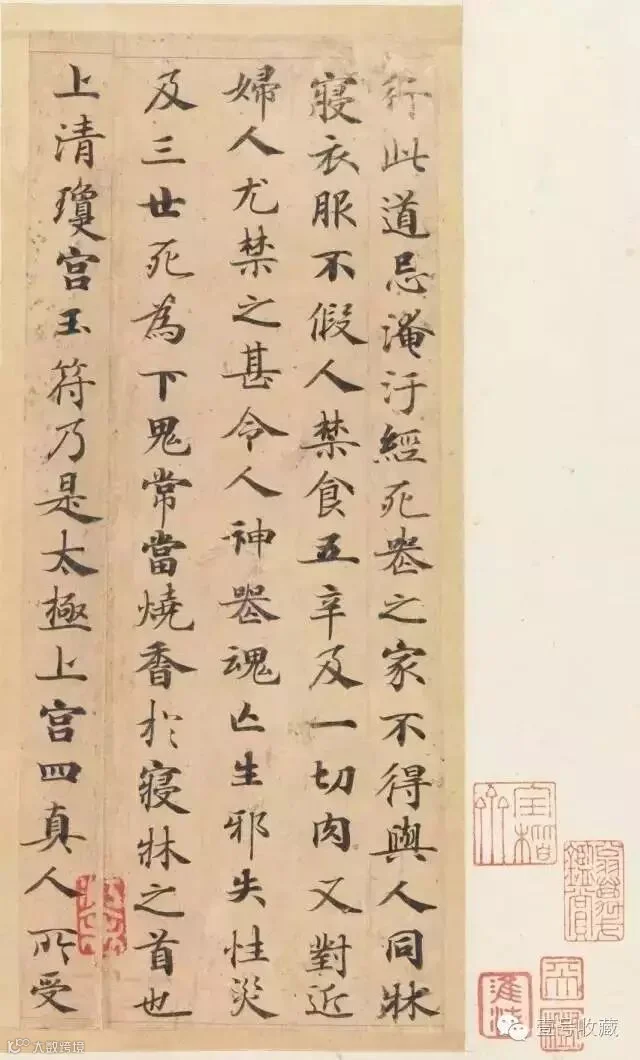 行此道忌淹汙經死䘮之家不得與人同牀
寢衣服不假人禁食五辛及一切肉又對近
婦人尤禁之甚令人神䘮魂亾生邪失性災
及三世死為下鬼常當燒香於寢牀之首也
上清瓊宮玉符乃是太極上宮四真人所受
壹号收藏
大数跨境